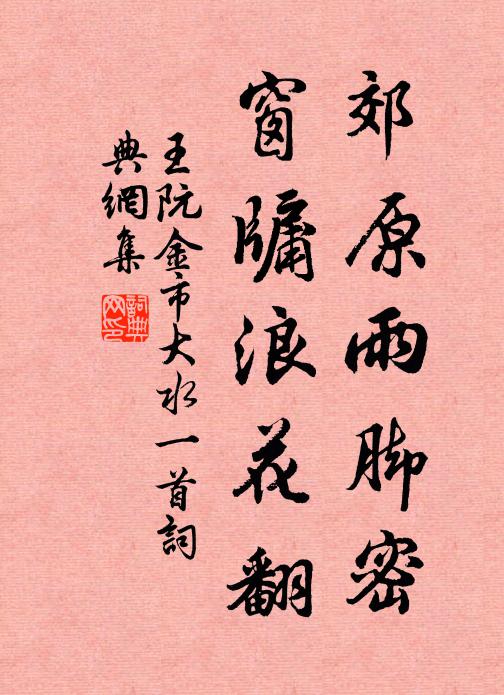 郊原雨脚密
窗牖浪花翻
王阮金市大水一首詞
典網集
詞典網印